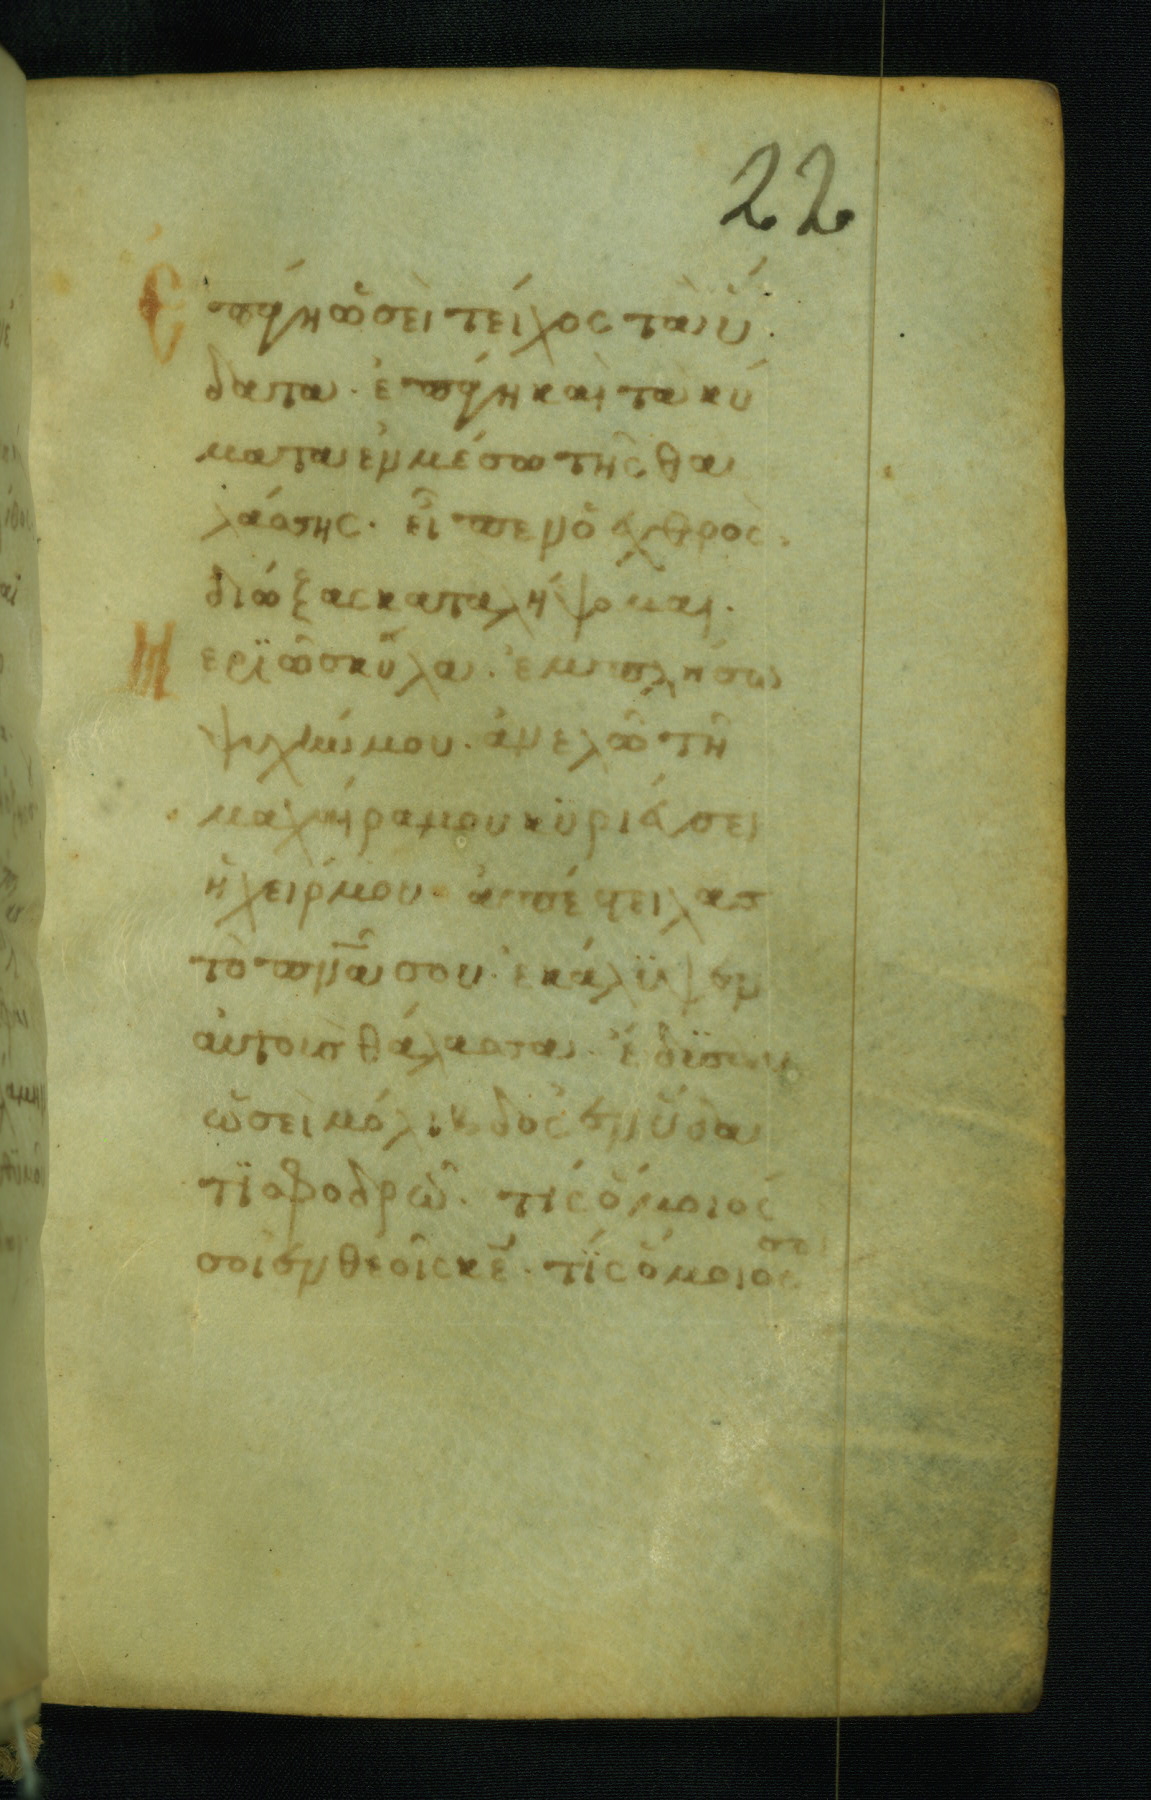 22
Ἐπάγη ὡσεὶ τεῖχος τὰ ὕ
δατα· ἐπάγη καὶ τὰ κύ
ματα ἐν μέσω τῆς θα
λάσσης· εἶπεν ὁ ἐχθρός·
διώξας καταλήψομαι·
Μεριῶ σκῦλα· ἐμπλήσω
ψυχήν μου· ἀνελῶ τῆ
μαχαίρα μου κυριεύσει
ἡ χείρ μου· ἀπέστειλας
τὸ πν̅α̅ σου· ἐκάλϋψεν
αὐτοὺς θάλασσα· ἔδϋσαν
ὡσεὶ μόλιβδος ἐν ὕδα
τϊ σφοδρῶ· τίς ὅμοιός
σοι ἐν θεοῖς κ̅ε̅· τίς ὅμοιος
σοι